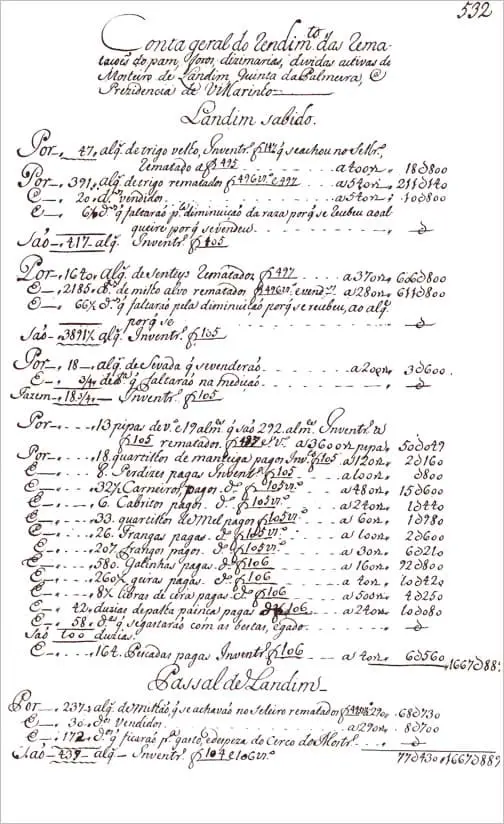 532
Conta geral do Rendim.to das Rema-
taçoẽs do pam, foros, dizimarias, dividas activas do
Mosteiro de Landim, Quinta da Palmeira, E
Prezidencia de Villarinho
Landim sabido.
Por 47. alq.s de trigo velho, Inventr.º f 147 q̃ se achou no Selr.º,
Rematado a f 495 a 400 rs 18$800
Por 391. alq.s de trigo rematados f 496 vº e 497 a 540 rs 211$140
E 20. d.os vendidos a 540 rs 10$800
E 6 d.os q̃ faltarão p.la diminuição da raza porq̃ se recebeu ao al
queire porq̃ se vendeu $
São 417 alq.s Inventr.º f 105
Por 1640. alq.s de Senteyo Rematados f 497 a 370 rs 606$800
E 2185. d.os de milho alvo rematados f 496 vº e vend.os a 280 rs 611$800
E 66 d.os q̃ faltarão pela diminuição porq̃ se recebeu, ao alq.e
porq̃ se $
São 3891 alq.s Inventr.º f 105
Por 18 alq.s de Sevada q̃ se venderão a 200 rs 3$600
E 3/4 de d.a q̃ faltarão na medição $
Fazem 18 3/4 Inventr.º f 105
Por 13 pipas de v.º e 19 alm.s q̃ são 292. alm.s Inventr.º
f 105 rematados f vº a 3600 rs pipa 50$049
Por 18. quartilhos de manteiga pagos Inv.º f 105 a 120 rs 2$160
E 8. Perdizes pagas Inventr.º f 105 a 100 rs $800
E 32 Carneiros pagos d.º f 105 vº a 480 rs 15$600
E 6. Cabritos pagos d.º f 105 vº a 240 rs 1$440
E 33. quartilhos de Mel pagos f 105 vº a 60 rs 1$980
E 26. Frangas pagas d.º f 105 vº a 100 rs 2$600
E 207 Frangos pagos d.º f 105 vº a 30 rs 6$210
E 580. Galinhas pagas d.º f 106 a 160 rs 92$800
E 260 pagas d.º f 106 a 40 rs 10$420
E 8 libras de cera pagas d.º f 106 a 500 rs 4$250
E 42. duzias de palha painça pagas f 106 a 240 rs 10$080
E 58. d.as q̃ se gastarão com as bestas, e gado $
São 100 duzias.
E 164. Pescadas pagas Inventr.º f 106 a 40 rs 6$560 1667$889
Passal de Landim
Por 237 alq.s de Milhão, q̃ se achavão no Seleiro rematados f a 290 68$730
E 30 d.os Vendidos a 290 rs 8$700
E 172 d.os q̃ ficarão p.ª gasto, e despeza do Cerco do Mostr.º $
São 439 alq.s Inventr.º f 104 e 106 vº 77$430 1667$889